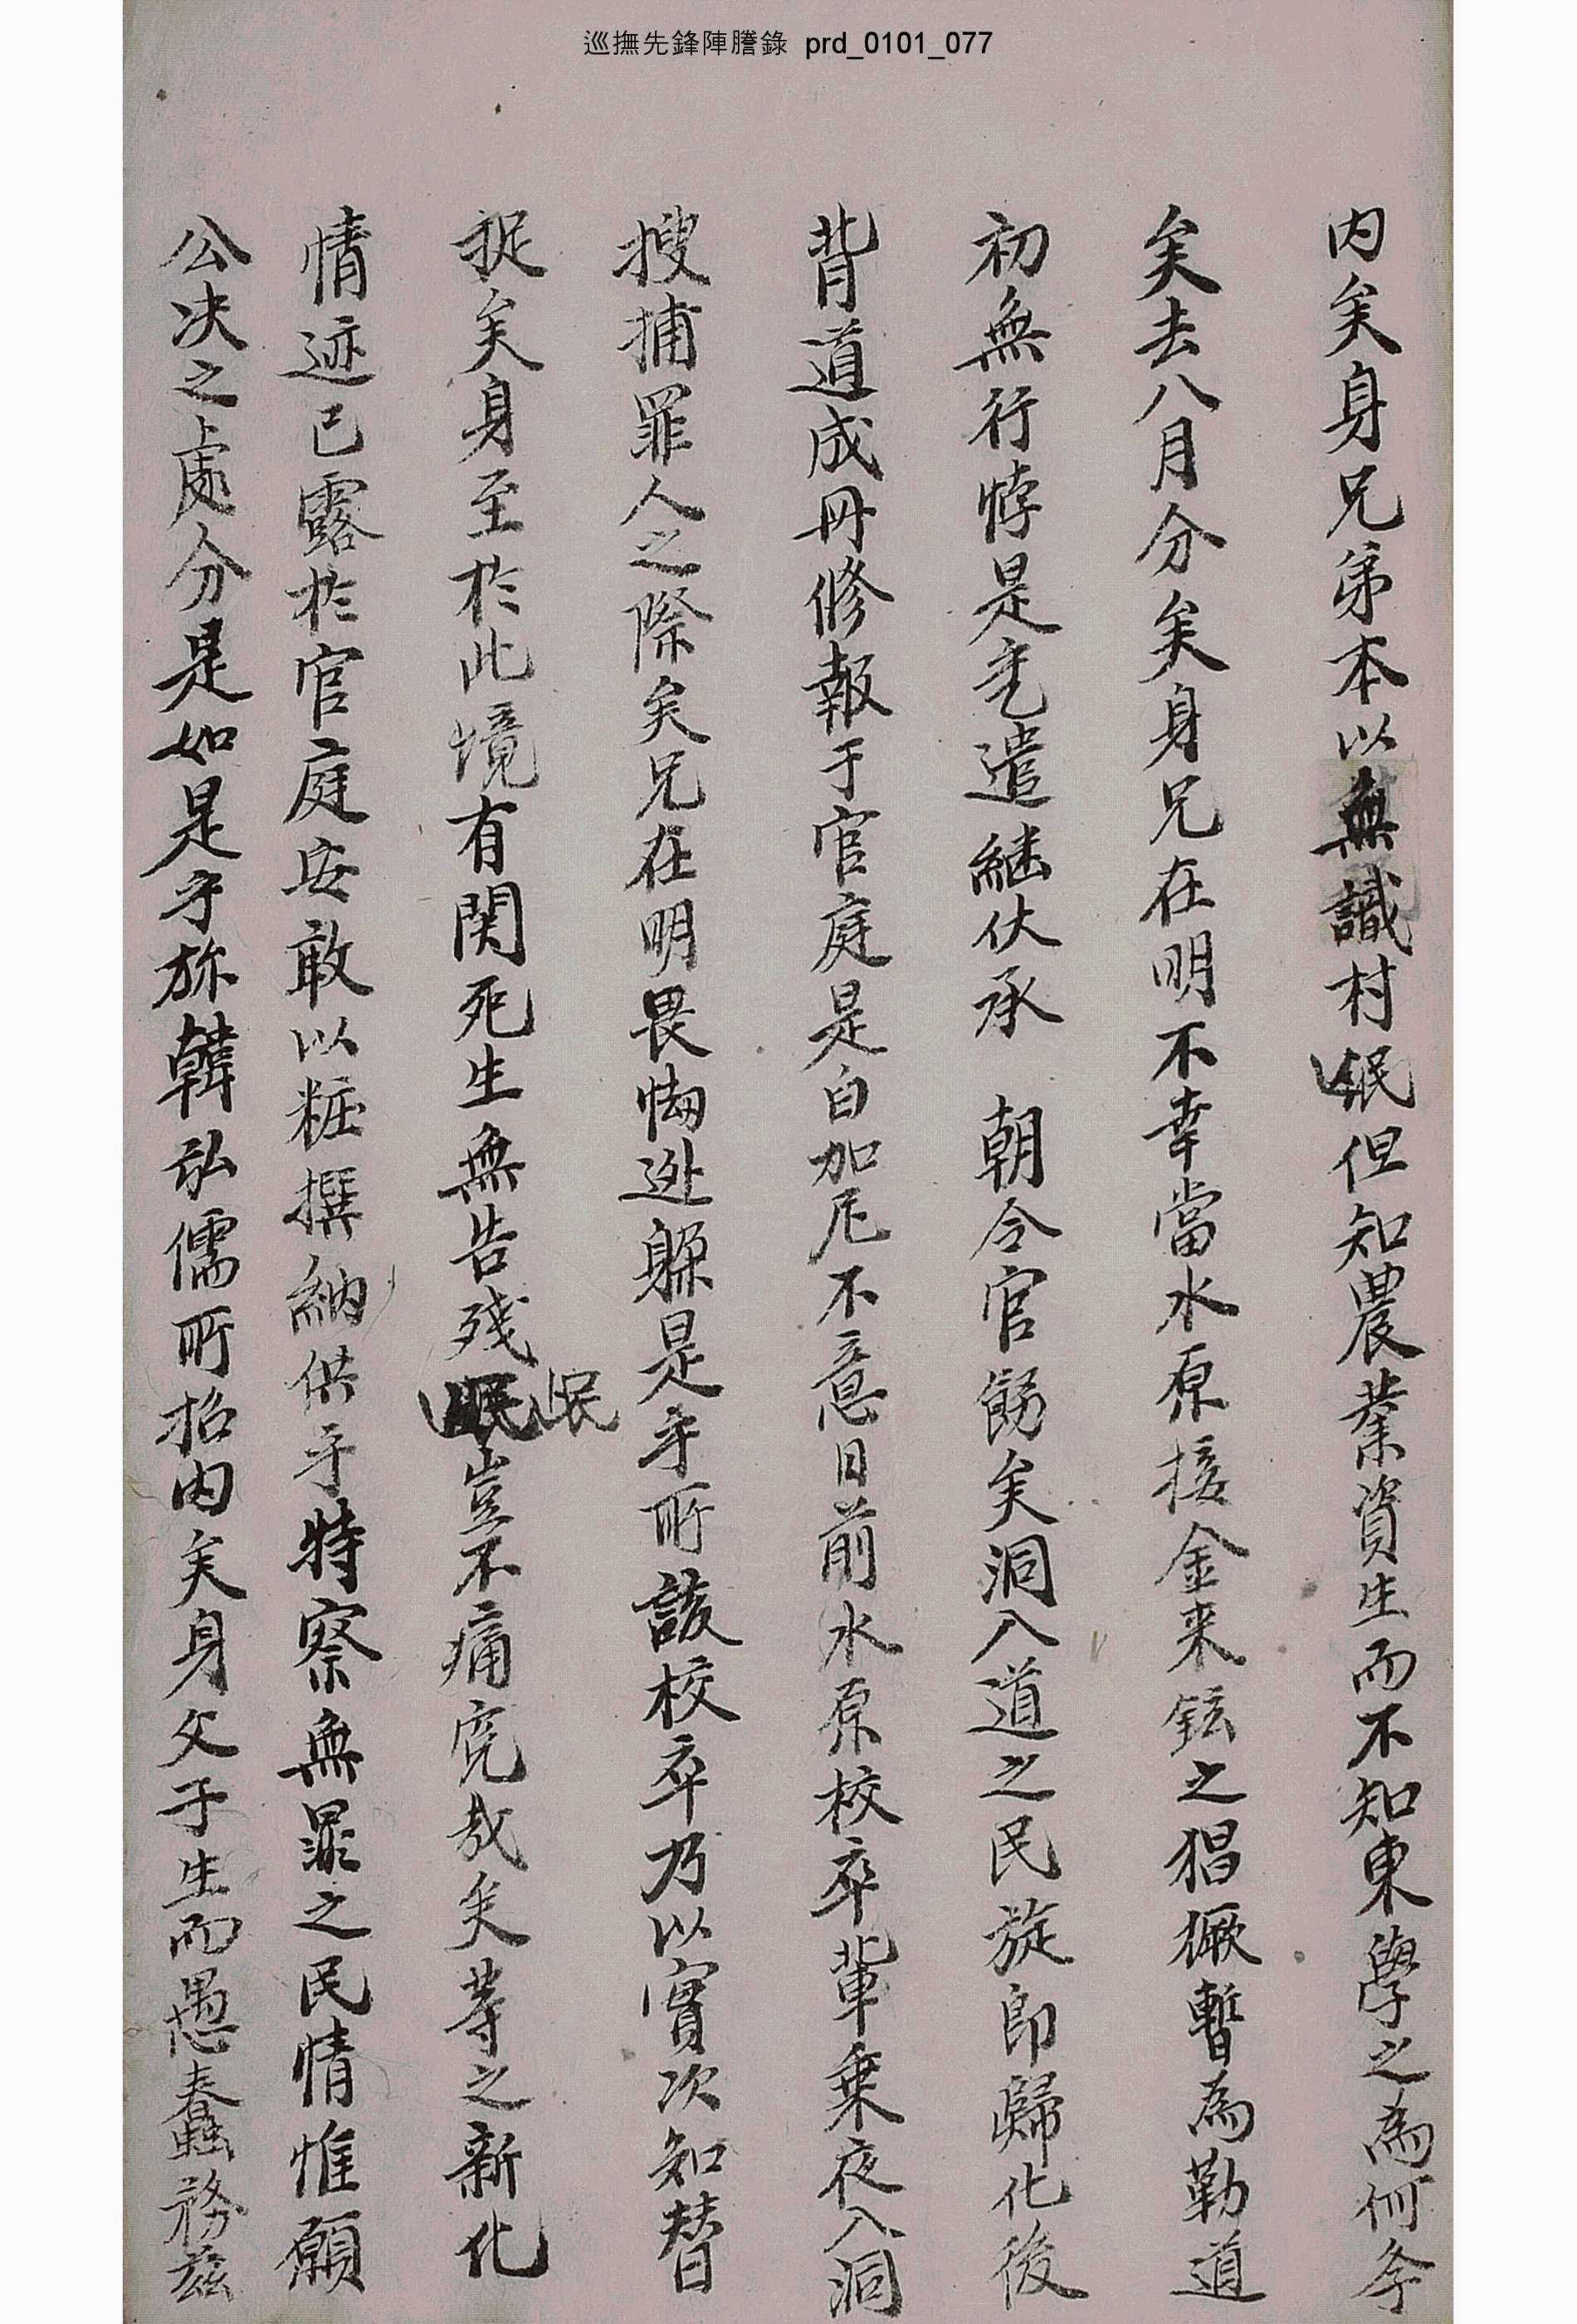 巡撫先鋒陣謄錄 prd_0101_077
內矣身兄弟本以無識村氓但知農業資生而不知東學之爲何今
矣去八月分矣身兄在明不幸當水原接金来鉉之猖獗暫爲勒道
初無行悖是乞遣継伏承 朝令官飭矣洞入道之民旋即歸化後
背道成冊修報于官庭是白加尼不意日前水原校卒輩乗夜入洞
搜捕罪人之際矣兄在明畏惻逃躱是乎所該校卒乃以實次知替
捉矣身至於此境有関死生無告殘氓豈不痛寃哉矣等之新化
情迹已露於官庭安敢以粧撰納供乎特察無罪之民情惟願
公决之處分是如是乎旀韓弘儒所招內矣身父子生而愚蠢務玆